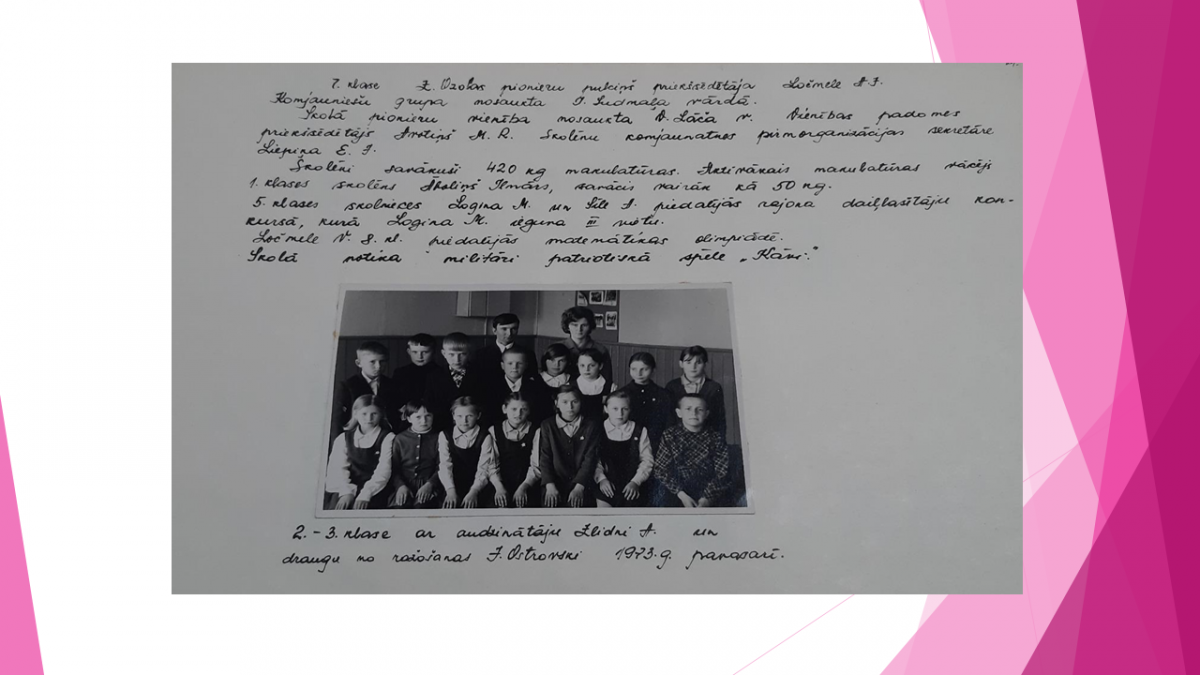 7. klase Z. Ozolas pionieru pulciņš priekšsēdētāja Ločmele A. J.
Komjauniešu grupa nosaukta I. Sudmaļa vārdā.
Skolā pionieru vienība nosaukta D. Lāča v. Vienības padomes
priekšsēdētājs M. R. Skolēnu komjaunatnes pirmorganizācijas sekretāre
Liepiņa E. J.
Skolēni savākuši 420 kg makulatūras. Aktīvākais makulatūras vācējs
1. klases skolēns Āboliņš savācis vairāk kā 50 kg.
5. klases skolnieces Logina M. un piedalījās rajona daiļlasītāju kon-
kursā, kurā Logina M. ieguva III vietu.
Ločmele V. 8. kl. piedalījās matemātikas olimpiādē.
Skolā notika militāri patriotiskā spēle
2. - 3. klase ar audzinātāju Zlidni A. un
draugu no ražošanas J. Ostrovski 1973. g. pavasarī.